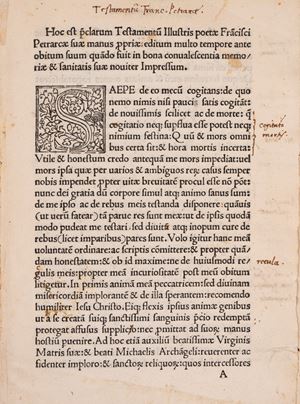 Testamentũ Franc. Petrarcę
Hoc est p̃clarum Testamentũ Illustris poetæ Frãcisci
Petrarcæ suæ manus ppriæ: editum multo tempore ante
obitum suum quãdo fuit in bona conualescentia memo/
riæ & sanitatis suæ nouiter Impressum.
SAEPE de eo mecũ cogitans: de quo
nemo nimis nisi pauci satis cogitãt
de nouissimis scilicet ac de morte: q̃
cogitatio neq; supflua esse potest neq;
nimium festina: Q uũ & mors omni
bus certa sit: & hora mortis incerta:
cogitatio
mortis
Vtile & honestum credo antequã me mors impediat: uel
mors ipsa quæ per uarios & ambiguos reɤ casus semper
nobis impendet ppter uitæ breuitatẽ procul esse nõ põt
nunc dei gratia dũ corpore simul atq; animo sanus sum:
de me ipso ac de rebus meis testanda disponere: quãuis
(ut uerũ fatear) tã paruæ res sunt meæ: ut de ipsis quodã
modo pudeat me testari. sed diuitũ atq; inopum curæ de
rebus (licet imparibus) pares sunt. Volo igitur hanc meã
uoluntatẽ ordinare: ac scriptis cõmittere: & propter quã
dam honestatem: & ob id maxime: ne de huiusmodi re/
gulis meis: propter meã incuriositatẽ post meũ obitum
litigetur. In primis animã meã peccatricem: sed diuinam
misericordiã implorantẽ & de illa sperantem: recomendo
humiliter Iesu Christo. Eiq; flexis ipsius animæ genibus
ut a se creatã suiq; sanctissimi sanguinis p̃cio redemptã
protegat affusus supplico: nec pmittat ad suoɤ manus
hostiũ peuenire. Ad hoc etiã auxiliũ beatissimæ Virginis
Matris suæ: & beati Michaelis Archãgeli: reuerenter ac
fidenter imploro: & sanctoɤ reliquoɤ: quos intercessores
regula.
A